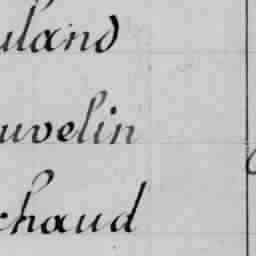 uland
uvelin
chaud